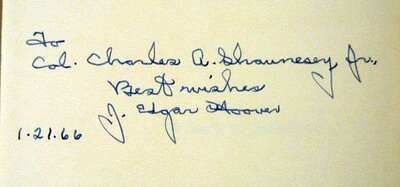 To
Col. Charles A. Shaunesey Jr.,
Best wishes
J. Edgar Hoover
1.21.66